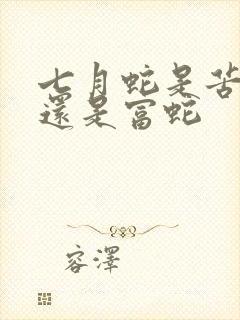 七月蛇是苦
還是富蛇
容澤